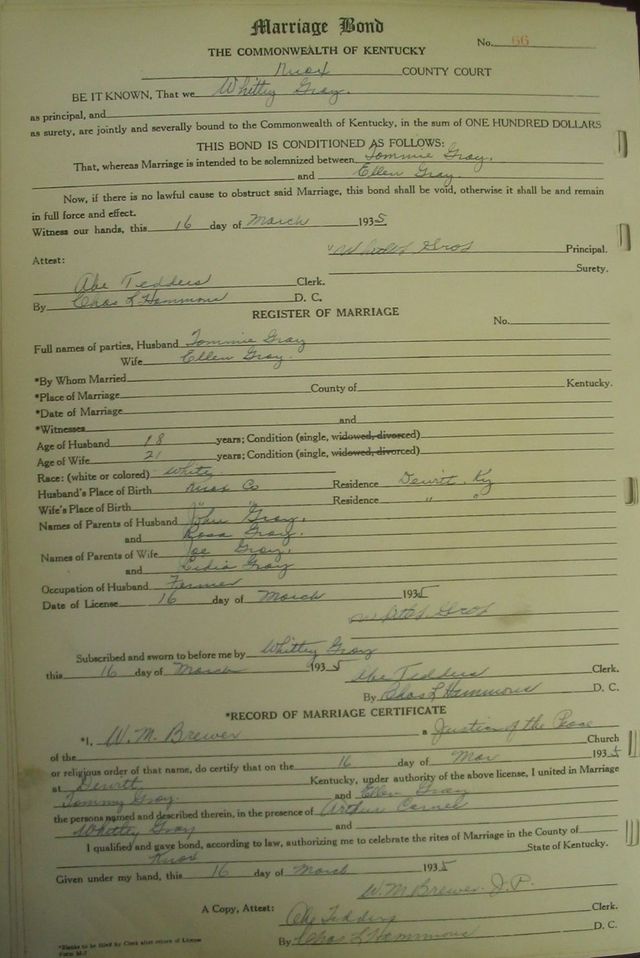 Marriage Bond
No. 66
THE COMMONWEALTH OF KENTUCKY
Knox COUNTY COURT
BE IT KNOWN, That we Whittey Gray.
as principal, and
as surety, are jointly and severally bound to the Commonwealth of Kentucky, in the sum of ONE HUNDRED DOLLARS
THIS BOND IS CONDITIONED AS FOLLOWS:
That, whereas Marriage is intended to be solemnized between Tommie Gray,
and Ellen Gray.
Now, if there is no lawful cause to obstruct said Marriage, this bond shall be void, otherwise it shall be and remain
in full force and effect.
Witness our hands, this 16 day of March 1935.
Principal.
Attest: Surety.
Abe Tedders Clerk.
By Chas L Hammons D. C.
REGISTER OF MARRIAGE
No.
Full names of parties, Husband Tommie Gray
Wife Ellen Gray.
*By Whom Married
*Place of Marriage County of Kentucky.
*Date of Marriage
*Witnesses and
Age of Husband 18 years; Condition (single, widowed, divorced)
Age of Wife 21 years; Condition (single, widowed, divorced)
Race: (white or colored) White
Husband's Place of Birth Knox Co Residence Dewitt, Ky
Wife's Place of Birth " " Residence " "
Names of Parents of Husband John Gray,
and Rosa Gray.
Names of Parents of Wife Joe Gray,
and Lidia Gray
Occupation of Husband Farmer
Date of License 16 day of March 1935
Subscribed and sworn to before me by Whittey Gray
this 16 day of March 1935
Abe Tedders Clerk.
By Chas L Hammons D. C.
*RECORD OF MARRIAGE CERTIFICATE
*I, W. M. Brewer a Justice of the Peace
of the Church
or religious order of that name, do certify that on the 16 day of Mar 1935
at Dewitt Kentucky, under authority of the above license, I united in Marriage
Tommy Gray. and Ellen Gray
the persons named and described therein, in the presence of Arthur
Whittey Gray and
I qualified and gave bond, according to law, authorizing me to celebrate the rites of Marriage in the County of
Knox State of Kentucky.
Given under my hand, this 16 day of March 1935
W. M Brewer. J. P.
A Copy, Attest: Abe Tedders Clerk.
By Chas L Hammons D. C.
*Blanks to be filled by Clerk after return of License